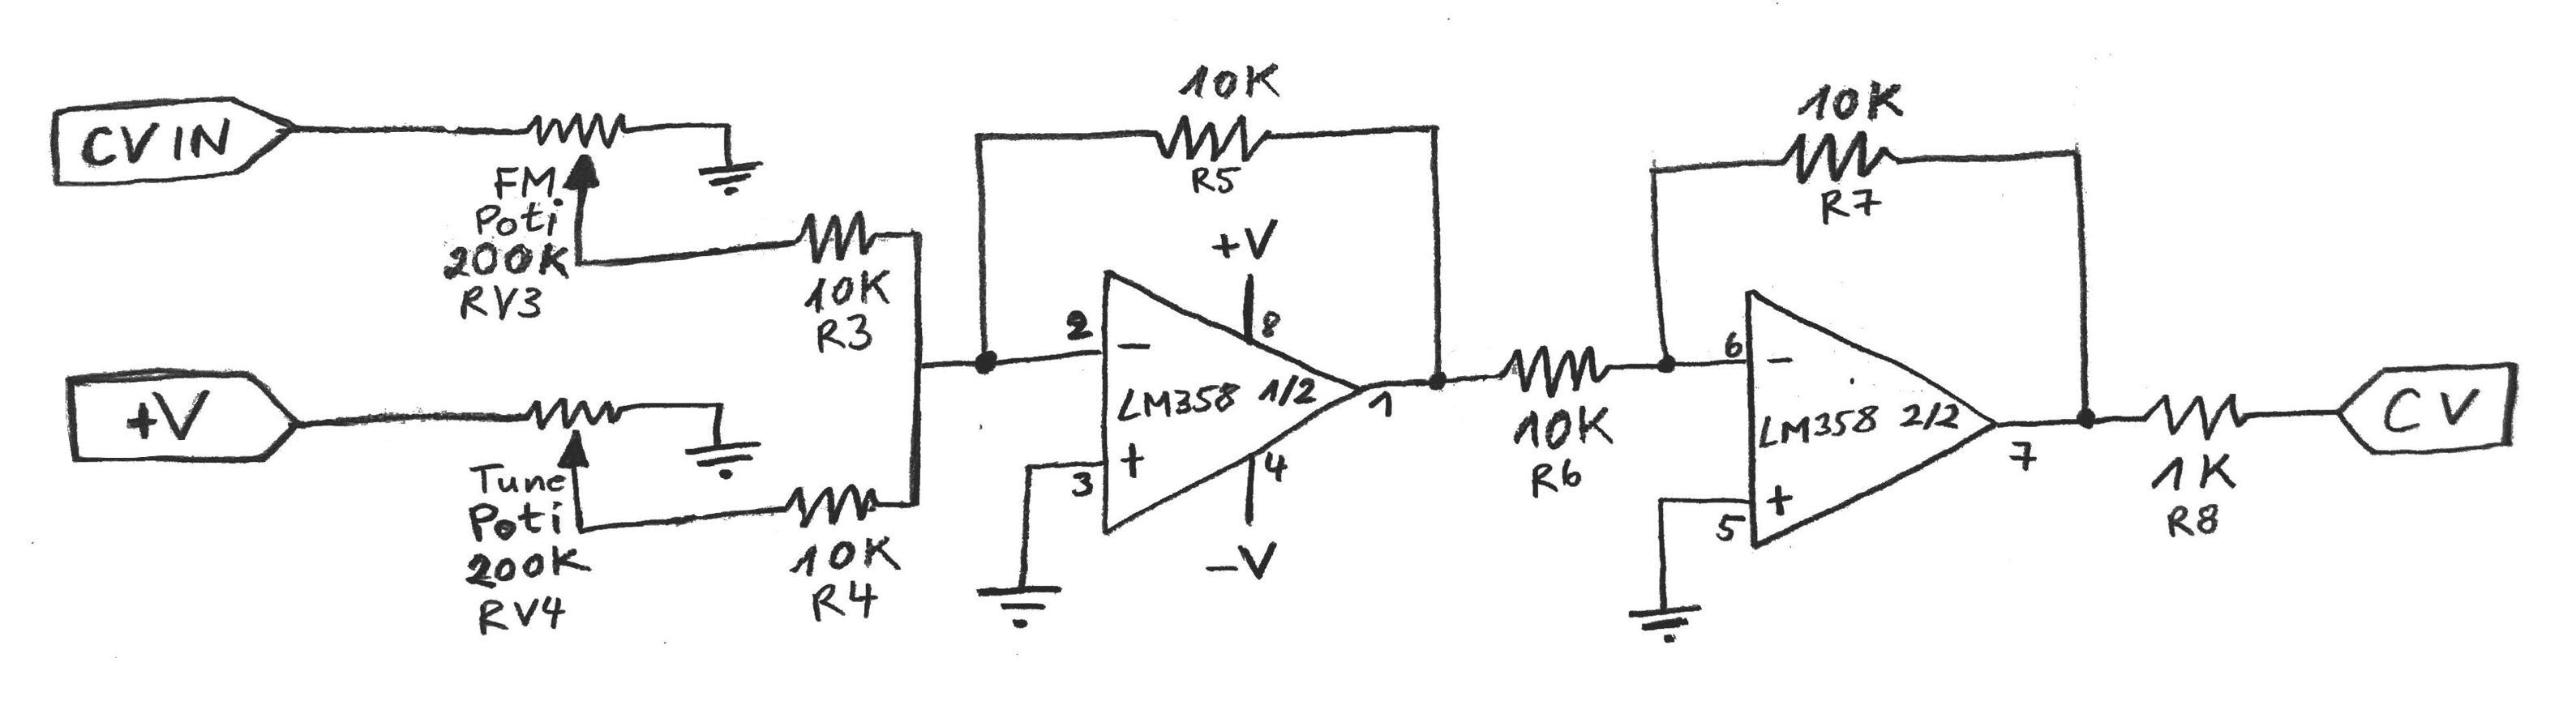 CV IN
FM
Poti
200K
RV3
10K
R3
+V
Tune
Poti
200K
RV4
10K
R4
10K
R5
+V
8
2
−
LM358 1/2
1
+
3
4
−V
10K
R6
10K
R7
6
−
LM358 2/2
7
+
5
1K
R8
CV